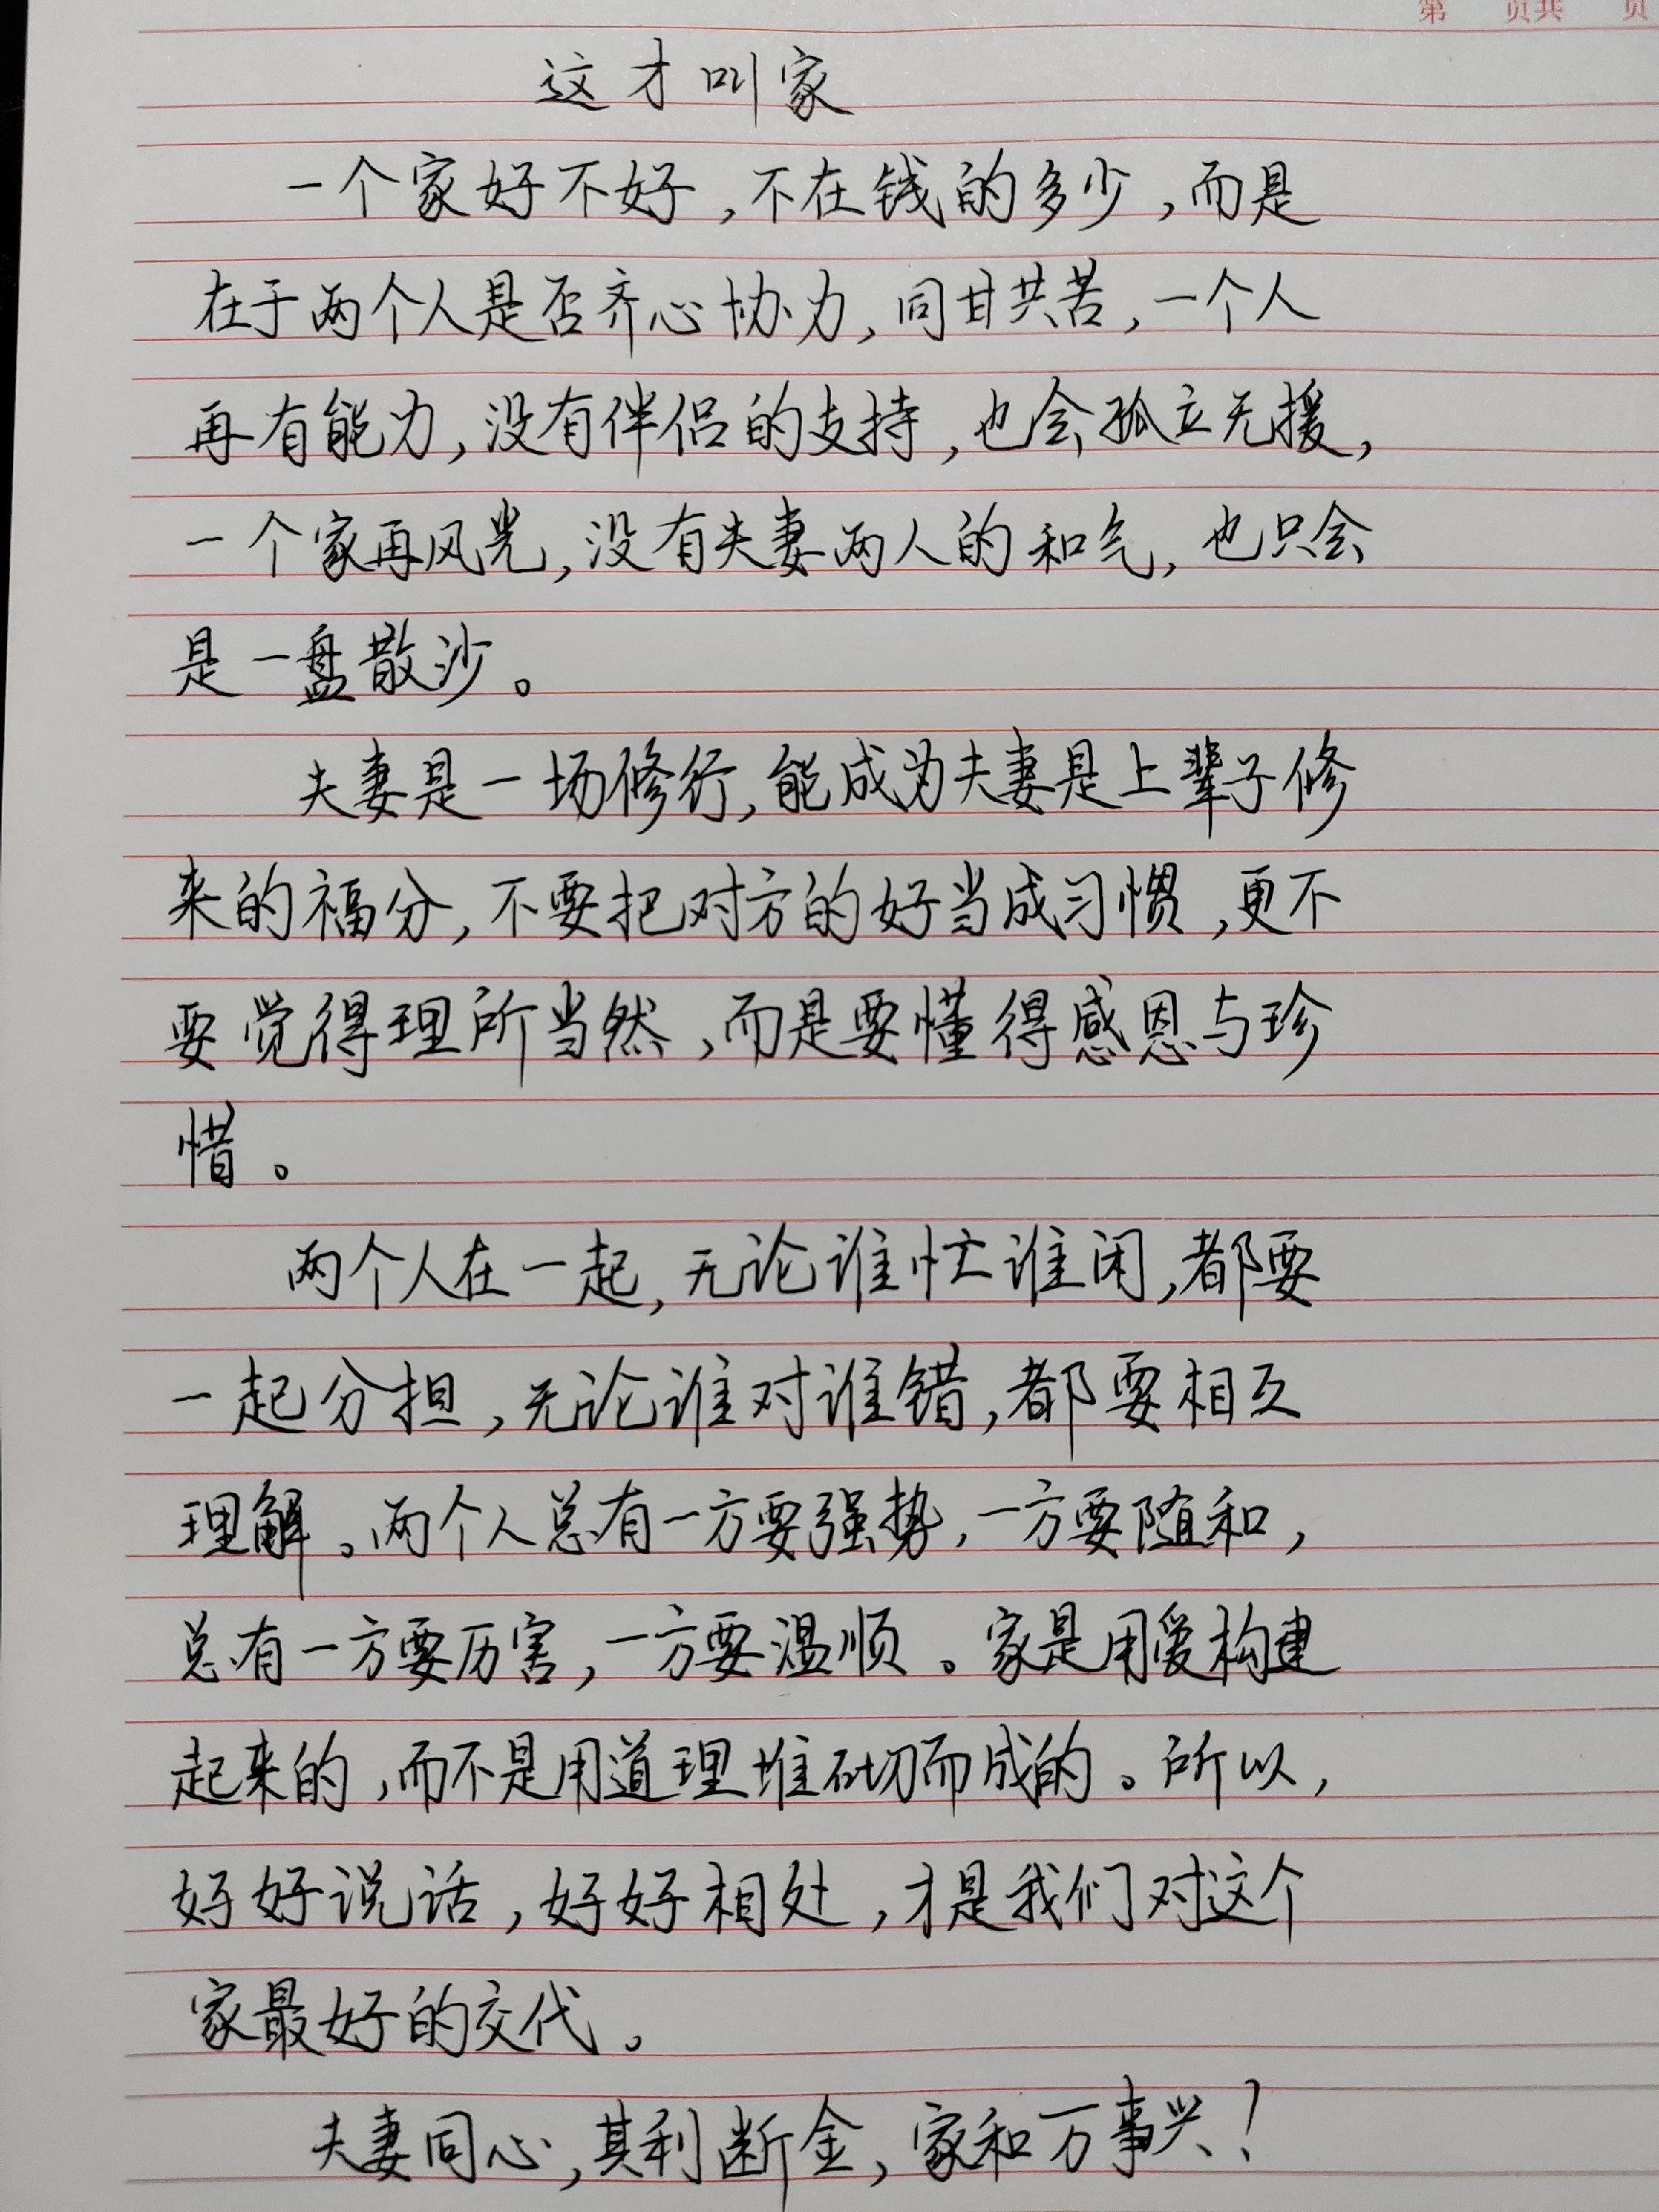 第 页共 页
这才叫家
一个家好不好,不在钱的多少,而是
在于两个人是否齐心协力,同甘共苦,一个人
再有能力,没有伴侣的支持,也会孤立无援,
一个家再风光,没有夫妻两人的和气,也只会
是一盘散沙。
夫妻是一场修行,能成为夫妻是上辈子修
来的福分,不要把对方的好当成习惯,更不
要觉得理所当然,而是要懂得感恩与珍
惜。
两个人在一起,无论谁忙谁闲,都要
一起分担,无论谁对谁错,都要相互
理解。两个人总有一方要强势,一方要随和,
总有一方要厉害,一方要温顺。家是用爱构建
起来的,而不是用道理堆砌而成的。所以,
好好说话,好好相处,才是我们对这个
家最好的交代。
夫妻同心,其利断金,家和万事兴!